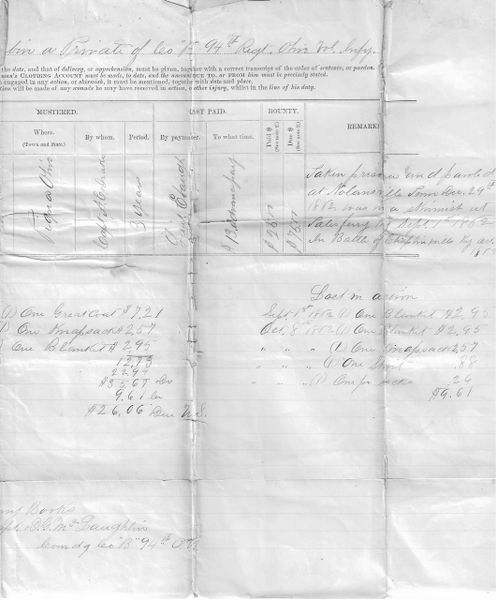 a Private of Co "B" 94th Regt. Ohio Vol Infy.
the date, and that of delivery, or apprehension, must be given, together with a correct transcript of the order of sentence, or pardon.
man's CLOTHING ACCOUNT must be made, to date, and the amount DUE TO, or FROM him must be precisely stated.
engaged in any action, or skirmish, it must be mentioned, together with date and place.
tion will be made of any wounds he may have received in action, or other injury, whilst in the line of his duty.
MUSTERED.
LAST PAID.
BOUNTY.
REMARKS
Where.
(Town and State.)
By whom.
Period.
By paymaster.
To what time.
Paid $
(See note 2.)
Due $
(See note 2.)
Ohio
3 years
$13 advance pay
$25.00
$75.00
Taken prisoner and paroled
at Nolansville Tenn Dec. 29th
1862 was in a skirmish at
Sept 1st 1862
In Battle of
Lost in action
(1) One Great Coat $7.21
One Knapsack $2.57
One Blanket $2.95
12.73
22.94
$35.67 Dr
9.61 Cr
$26.06 Due U.S.
Sept 1st 1862 (1) One Blanket $2.95
Oct. 8 1862 (1) One Blanket $2.95
" " " (1) One Knapsack 2.57
" " " (1) One Shirt .88
" " " (1) One pr socks .26
$9.61
Books
Capt. D.G. McLaughlin
Comdg Co "B" 94th O.V.